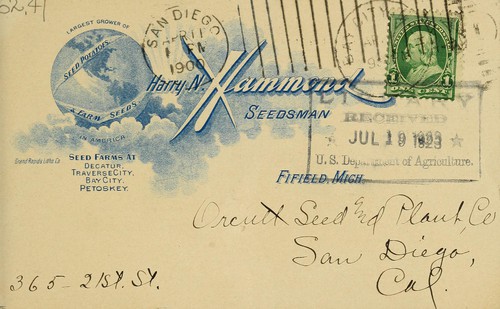 62.41
LARGEST GROWER OF
SEED POTATOES
& FARM SEEDS
IN AMERICA
Grand Rapids Litho Co.
SEED FARMS AT
DECATUR,
TRAVERSE CITY,
BAY CITY,
PETOSKEY.
Harry N. Hammond
SEEDSMAN
FIFIELD, MICH.
SAN DIEGO
1900
1 ONE CENT 1
LIBRARY
RECEIVED
★ JUL 19 1923 ★
U. S. Department of Agriculture.
Orcutt Seed and Plant Co
San Diego,
Cal.
365-21st. St.